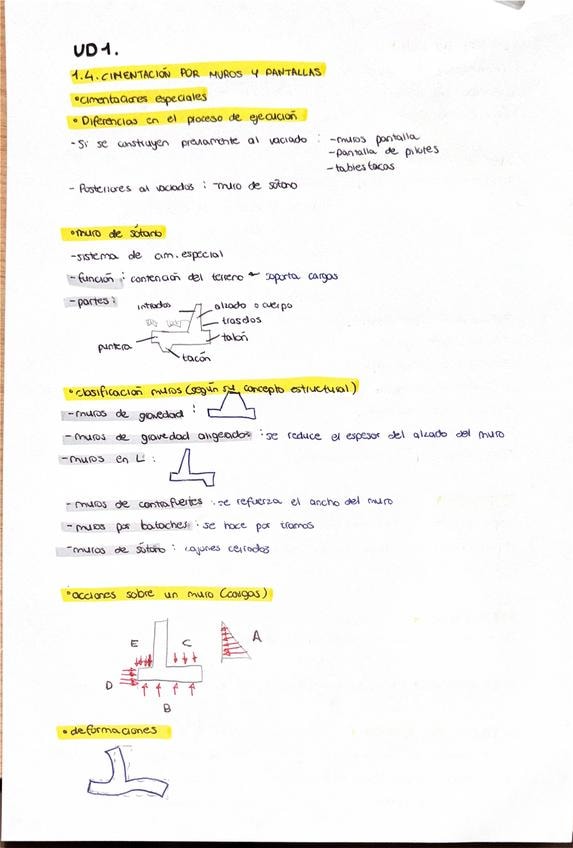 UD1.
1.4. CIMENTACIÓN POR MUROS Y PANTALLAS
• cimentaciones especiales
• Diferencias en el proceso de ejecución
- Si se construyen previamente al vaciado : - muros pantalla
- pantalla de pilotes
- tablestacas
- Posteriores al vaciados : - muro de sótano
• muro de sótano
- sistema de cim. especial
- función : contención del terreno + soporta cargas
- partes :
intradós
alzado o cuerpo
trasdós
puntera
talón
tacón
• clasificación muros (según su concepto estructural)
- muros de gravedad :
- muros de gravedad aligerados : se reduce el espesor del alzado del muro
- muros en L :
- muros de contrafuertes : se refuerza el ancho del muro
- muros por bataches : se hace por tramos
- muros de sótano : cajones cerrados
• acciones sobre un muro (cargas)
E C A
D
B
• deformaciones